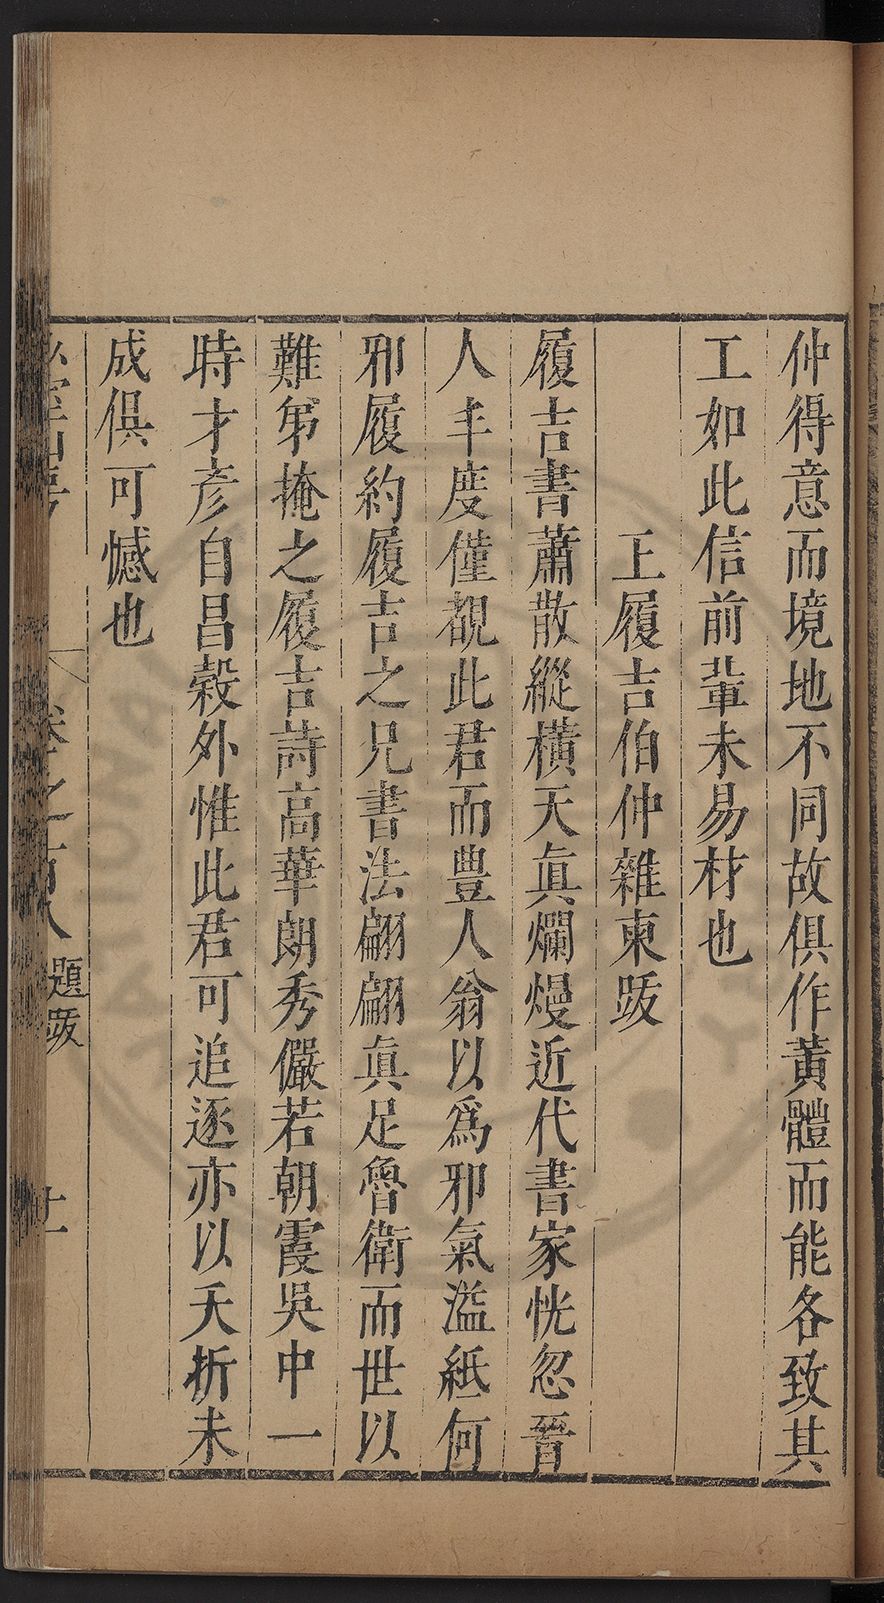 仲得意而境地不同故俱作黃體而能各致其
工如此信前輩未易材也
王履吉伯仲雜柬跋
履吉書蕭散縱橫天眞爛熳近代書家恍忽晉
人丰度僅覩此君而豊人翁以爲邪氣溢紙何
邪履約履吉之兄書法翩翩眞足魯衛而世以
難弟掩之履吉詩高華朗秀儼若朝霞吳中一
時才彥自昌穀外惟此君可追逐亦以夭折未
成俱可憾也
卷之百八 題跋 廿一